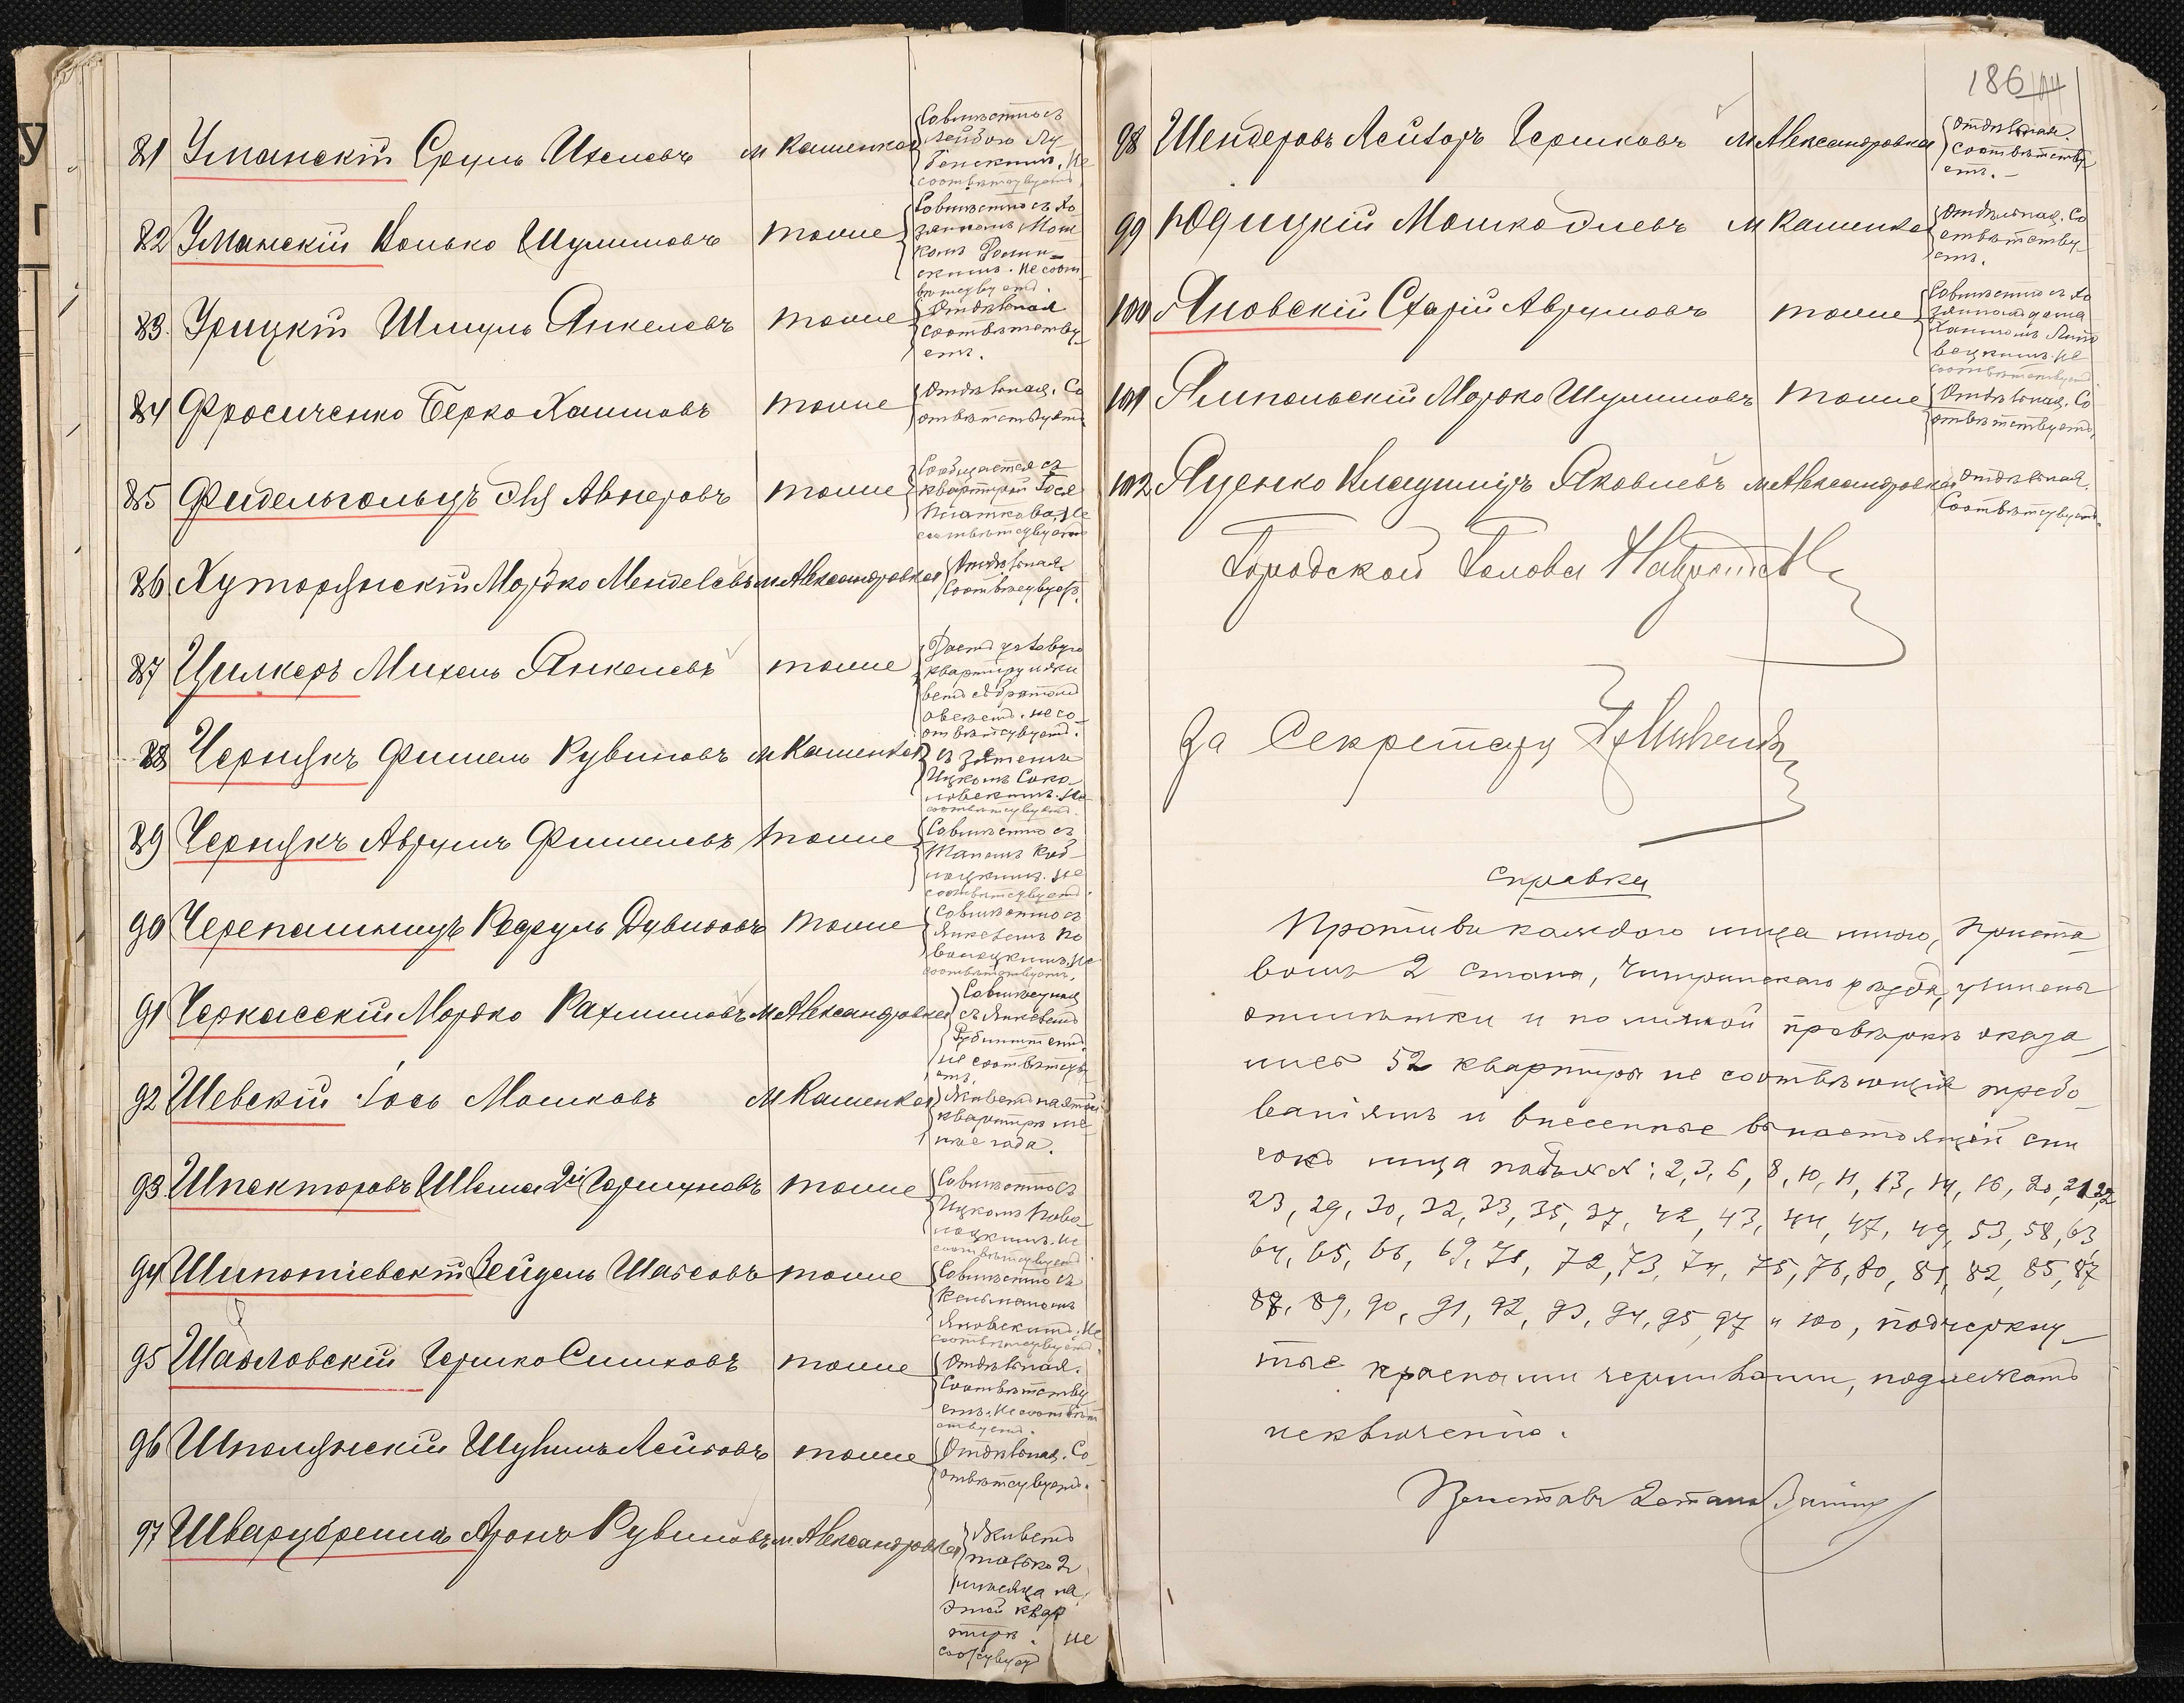 81 Уманскій Сруль Ихелевъ м Каменка
Совмѣстно съ
Лейбою Лу
бенскимъ. Не
соотвѣтсвуетъ
82 Уманскій Йонько Шулимовъ тоже
Совмѣстно съ хо
зяиномъ Мош
комъ
скимъ. Не соот
вѣтсвуетъ.
83. Урицкій Шмуль Янкелевъ тоже
Отдѣльная
соотвѣтству
етъ.
84 Фросиченко Берко Хаимовъ тоже
Отдѣльная. Со
отвѣтствуетъ
85 Фидельгольцъ Авнеровъ тоже
Сообщается съ
квартирой Гося
Платкова, Не
соотвѣтсвуетъ
86 Хуторянскій Мордко Менделевъ м Александровка
Отдѣльная
Соотвѣтсвуетъ.
87 Цилкеръ Михель Янкелевъ тоже
квартиру и жи
ветъ съ братомъ
не со
отвѣтсвуетъ.
88 Чернякъ Фишель Рувиновъ м Каменка
съ зятемъ
Ицкомъ Соко
ловскимъ. Не
соотвѣтсвуетъ.
89 Чернякъ Аврумъ Фишелевъ тоже
Совмѣстно съ
не
соотвѣтсвуетъ.
90 Черепашинцъ Дувидовъ тоже
Совмѣстно съ
Янкелемъ Во
волоцкимъ. Не
соотвѣтствуетъ.
91 Черкасскій Мордко Рахмиловъ м Александровка
съ Янкелемъ
не соотвѣтсву
етъ.
92 Шевскій Іось Мошковъ м Каменка
Живетъ на этой
квартирѣ ме
нѣе года.
93 Шпекторовъ Шлема 2й Гершуновъ тоже
Совмѣстно съ
Ицкомъ Вово
лоцкимъ. Не
соотвѣтсвуетъ.
94 Шипотіевскій Зейдель Шаевовъ тоже
Совмѣстно съ
Кельманомъ
Яновскимъ. Не
соотвѣтсвуетъ.
95 Шаоловскій Гершко Симховъ тоже
Отдѣльная.
Соотвѣтству
етъ. Не соотвѣт
ствуетъ.
96 Шполянскій Шулимъ Лейбовъ тоже
Отдѣльная. Со
отвѣтсвуетъ.
97 Шварцбреимъ Аронъ Рувиновъ м. Александровка
Живетъ
только 2
мѣсяца на
этой квар
тирѣ. Не
186
98 Шендеровъ Лейзоръ Гершковъ м Александровка
Отдѣльная.
Соотвѣтству
етъ. —
99 Юдицкій Мошко Элевъ м Каменка
Отдѣльная. Со
отвѣтству
етъ.
100 Яновскій Схарій Аврумовъ тоже
Совмѣстно съ хо
зяиномъ дома
Хаимомъ Лит
вецкимъ. Не
соотвѣтствуетъ
101 Ямпольскій Мордко Шулимовъ тоже
Отдѣльная. Со
отвѣтствуетъ.
102 Яценко Владиміръ Яковлевъ м Александровка
Отдѣльная.
Соотвѣтсвуетъ.
Городской Голова
За Секретаря
Справка
Противъ каждаго лица мною, Приста
вомъ 2 стана, Чигринскаго уѣзда, учинены
отмѣтки и по личной провѣркѣ оказа
лись 52 квартиры не соотвѣтствующія требо
ваніямъ и внесенные въ настоящій спи
сокъ лица подъ №№: 2, 3, 6, 8, 10, 11, 13, 14, 16, 20, 21, 22
23, 29, 30, 32, 33, 35, 37, 42, 43, 44, 47, 49, 53, 58, 63
64, 65, 66, 69, 71, 72, 73, 74, 75, 76, 80, 81, 82, 85, 87
88, 89, 90, 91, 92, 93, 94, 95, 97 и 100, подчеркну
тые красными чернилами, подлежатъ
исключенію.
Приставъ 2 стана